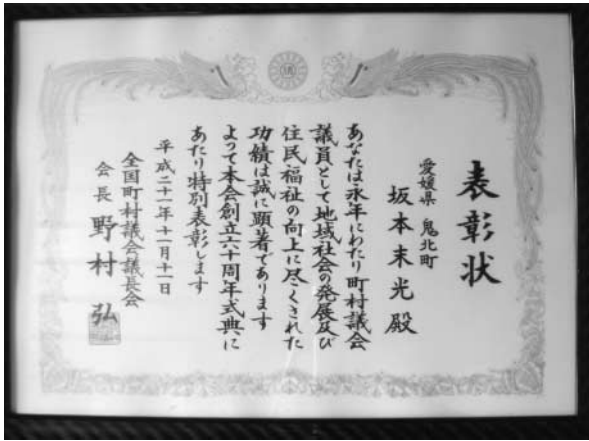 表彰状
愛媛県 鬼北町
坂本末光殿
あなたは永年にわたり町村議会
議員として地域社会の発展及び
住民福祉の向上に尽くされた
功績は誠に顕著であります
よって本会創立六十周年式典に
あたり特別表彰します
平成二十一年十一月十一日
全国町村議会議長会
会長 野村 弘